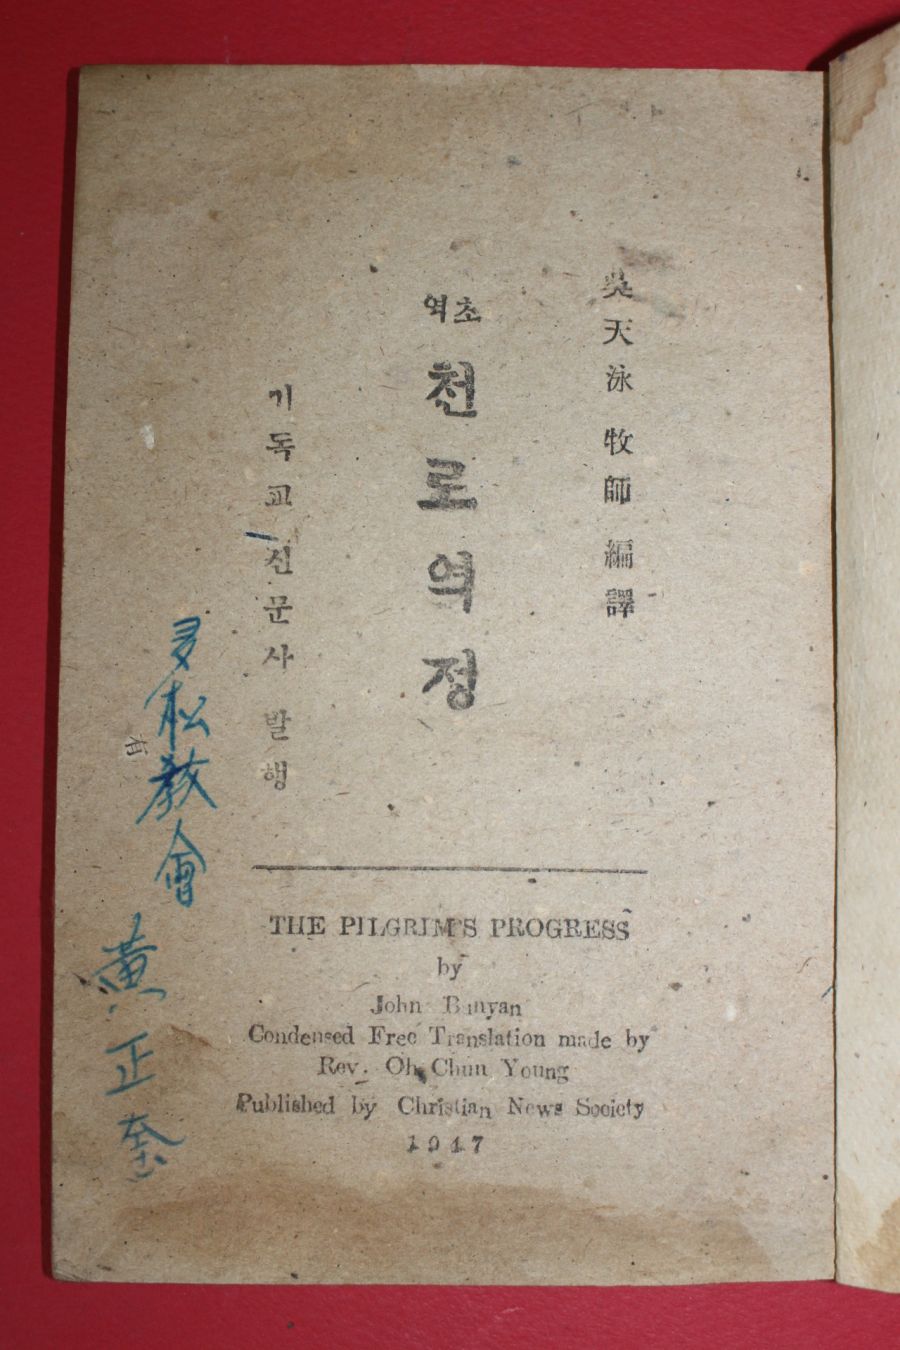 吳天泳牧師編譯
역초
천로역정
기독교신문사 발행
THE PILGRIM'S PROGRESS
by
John Bunyan
Condensed Free Translation made by
Rev. Oh Chun Young
Published by Christian News Society
1947
松教會
黃正
有